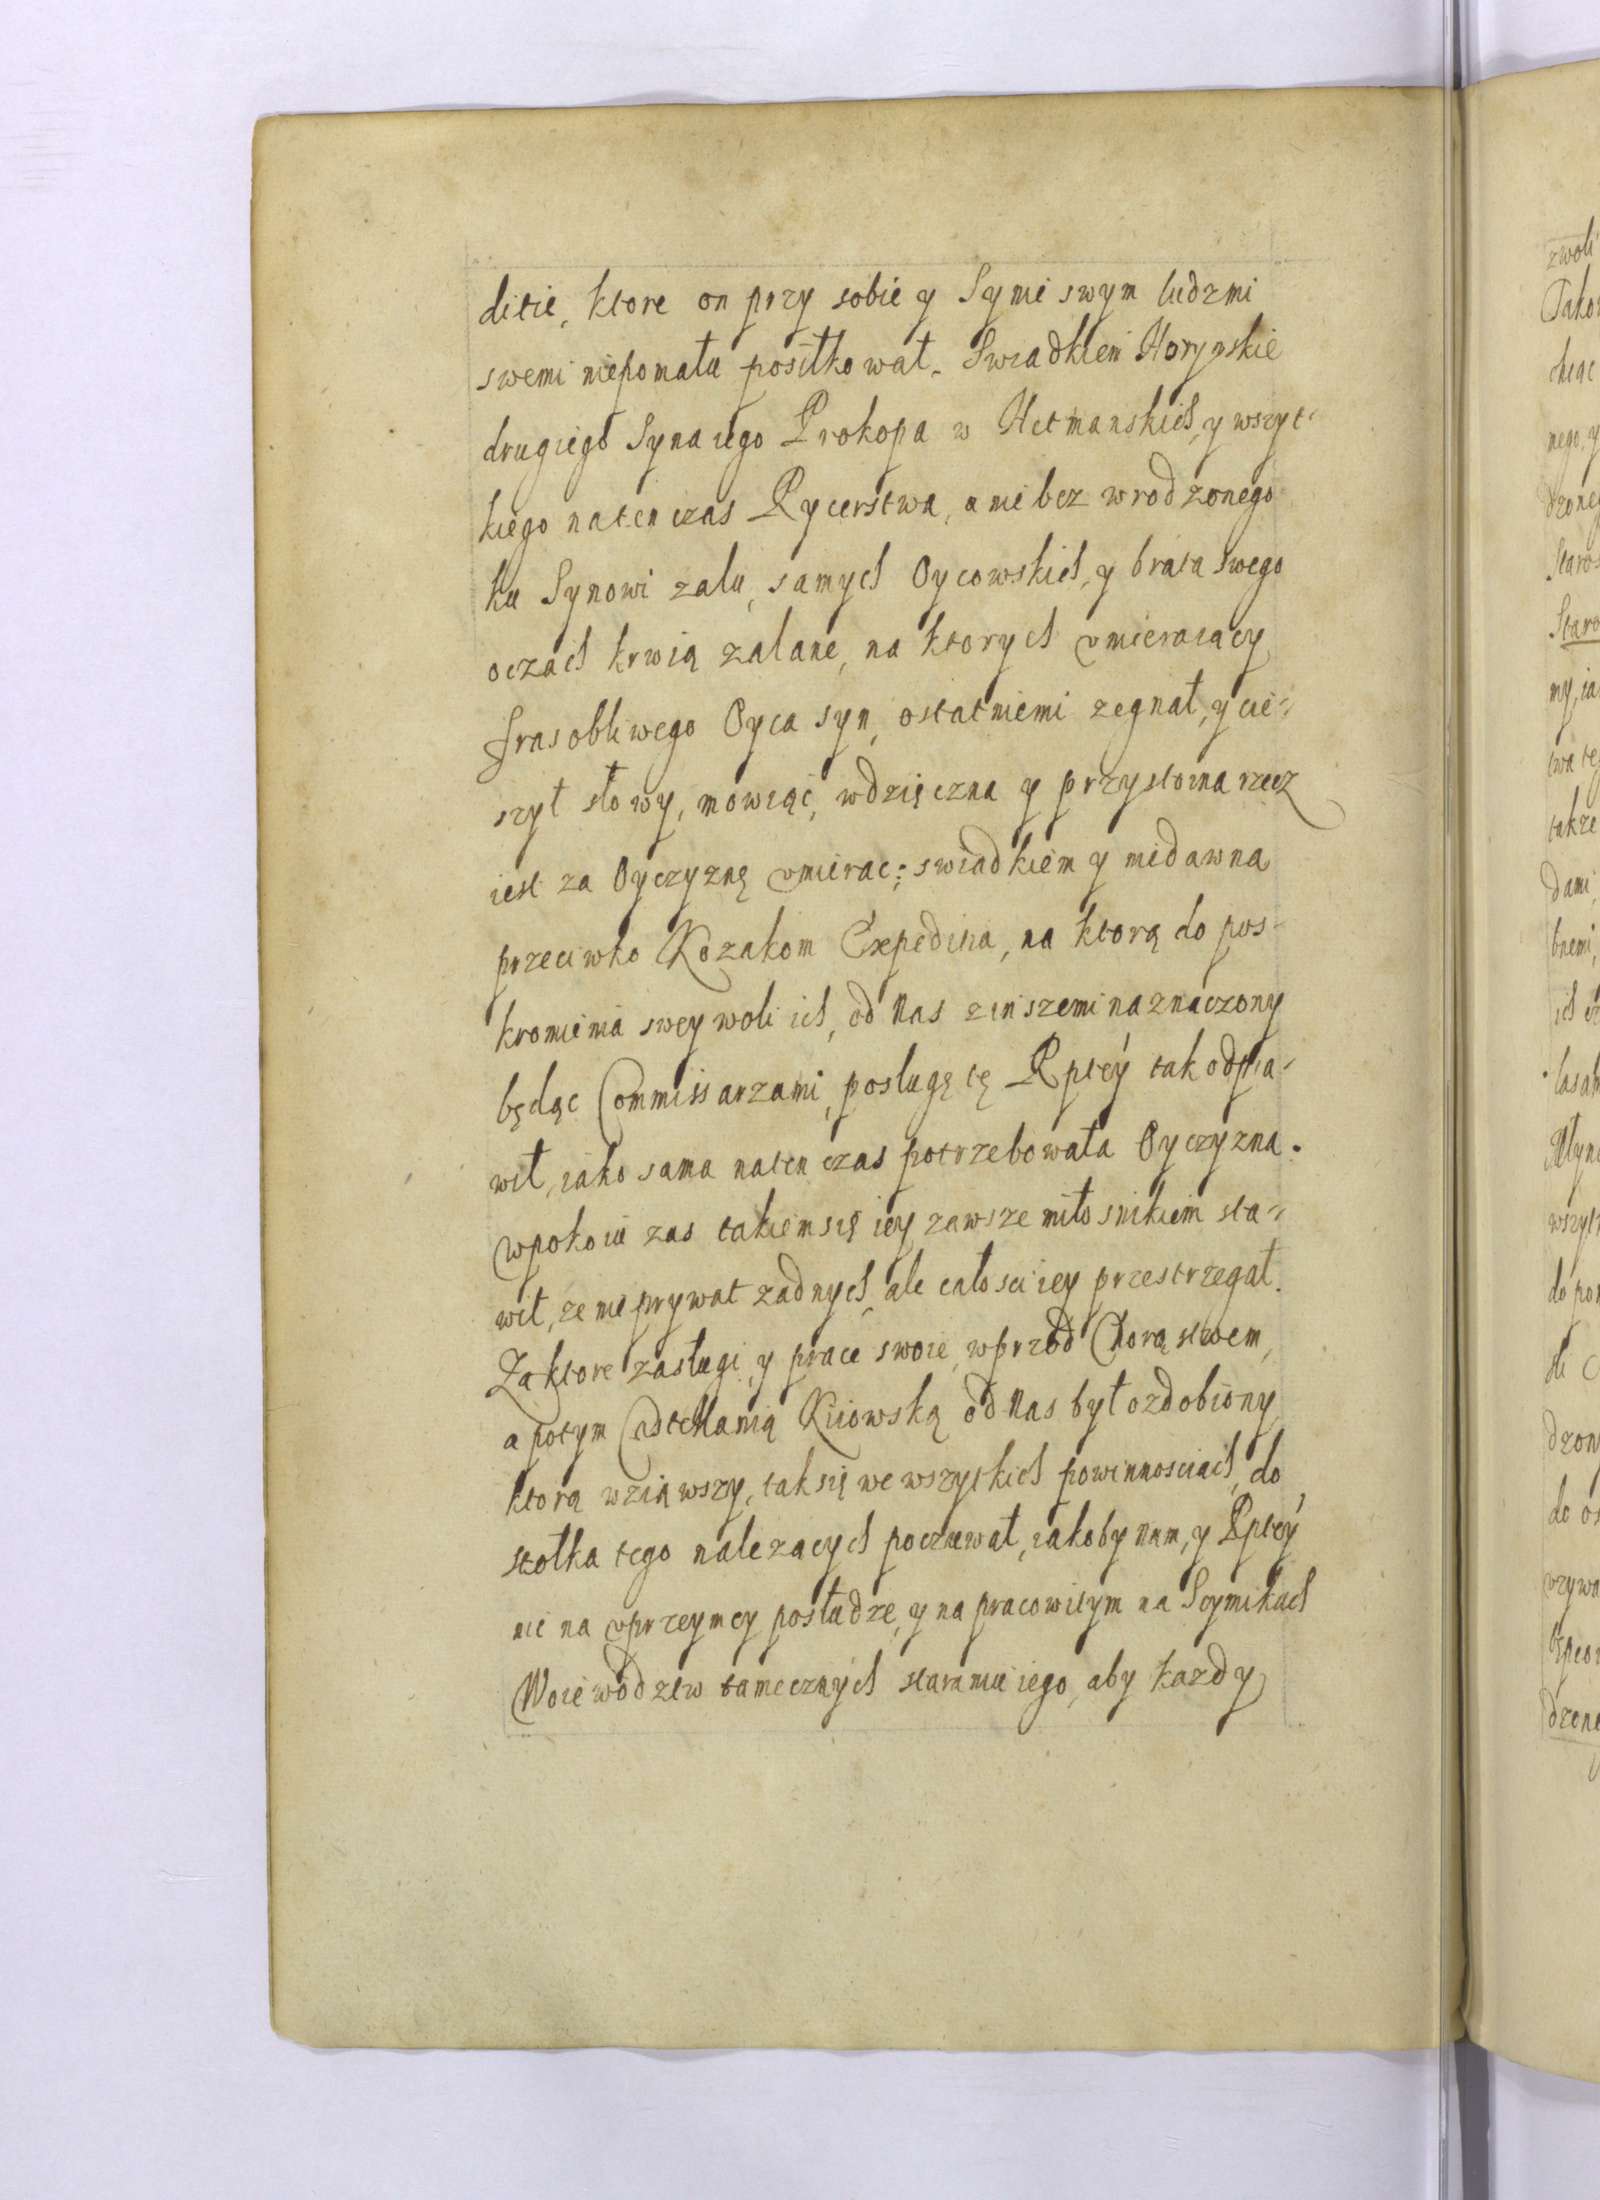 ditie, ktore on przy sobie y Synie swym ludzmi
swemi niepomału posiłkował. Swiadkiem Horynskie
drugiego Syna iego Prokopa w Hetmanskich, y wszyt-
kiego naten czas Rycerstwa, a nie bez wrodzonego
ku Synowi zalu, samych Oycowskich, y brata swego
oczach krwią zalane, na ktorych vmieraiący
frasobliwego Oyca syn, ostatniemi zegnał, y cie-
szył słowy, mowiąc, wdzięczna y przystoina rzecz
iest za Oyczyznę vmierac; swiadkiem y niedawna
przeciwko Kozakom Expeditia, na ktorą do pos-
kromienia swey woli ich, od Nas z inszemi naznaczony
będąc Commissarzami, posługę tę Rptey tak odpra-
wił, iako sama naten czas potrzebowała Oyczyzna.
w pokoiu zas takiem się iey zawsze miłosnikiem sta-
wił, ze nie prywat zadnych, ale całosci iey przestrzegał.
Za ktore zasługi, y prace swoie, wprzod Chorąstwem,
a potym Castellanią Kiiowską od Nas był ozdobiony
ktorą wziąwszy, tak się we wszytkich powinnosciach, do
stołka tego nalezących poczuwał, iakoby Nam, y Rptey
nie na vprzeymey posłudze, y na pracowitym na Seymikach
Woiewodztw tamecznych staraniu iego, aby kazdy
zwoli
Jakos
chcąc
nego, y
dzoneg
Staros
Staro
my, ia
twa te
takze
dami,
bnemi,
ich
lasah
Młyna
wszytk
do po
dzon
do os
vzywa
dzone